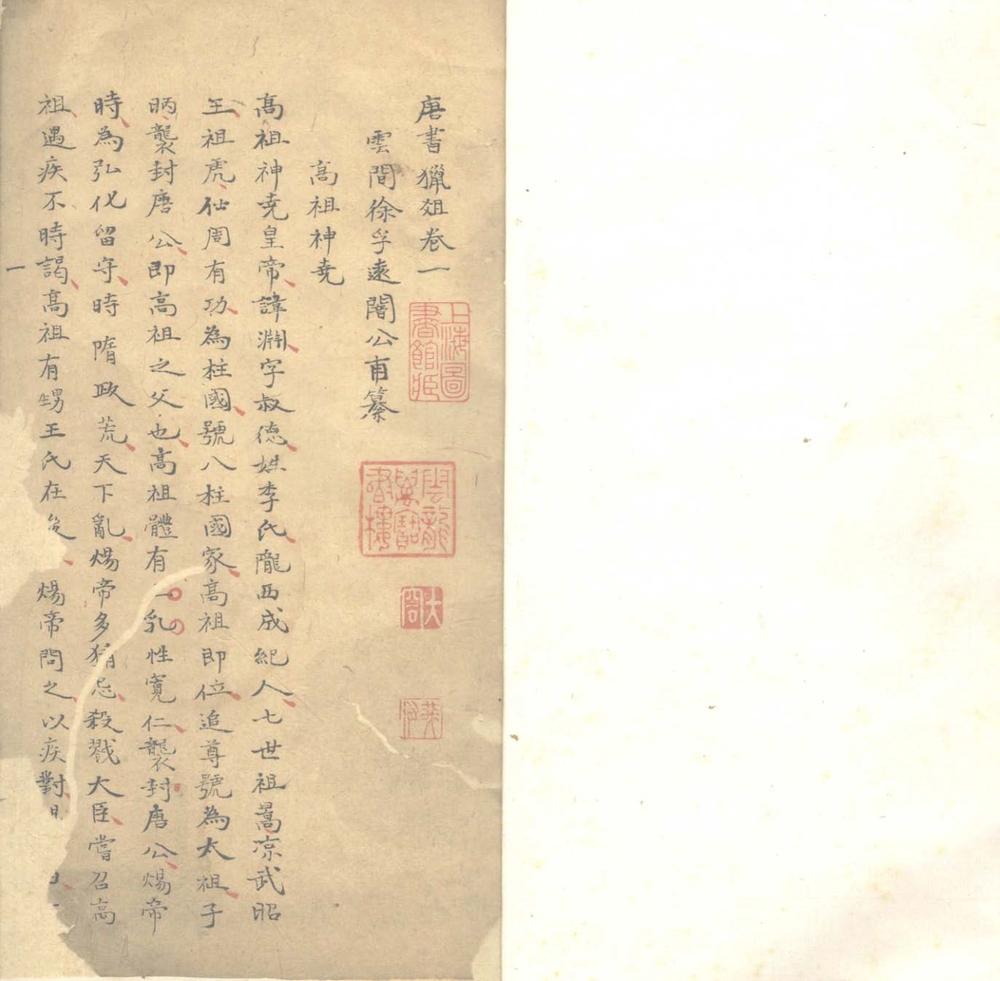 唐書獵俎卷一
雲間徐孚遠闇公甫纂
高祖神堯
高祖神堯皇帝諱淵字叔德姓李氏隴西成紀人七世祖暠涼武昭
王祖虎仕周有功為柱國號八柱國家高祖即位追尊號為太祖子
昞襲封唐公即高祖之父也高祖體有一乳性寬仁襲封唐公煬帝
時為弘化留守時隋政荒天下亂煬帝多猜忌殺戮大臣嘗召高
祖遇疾不時謁高祖有甥王氏在後煬帝問之以疾對
一
上海圖書館藏